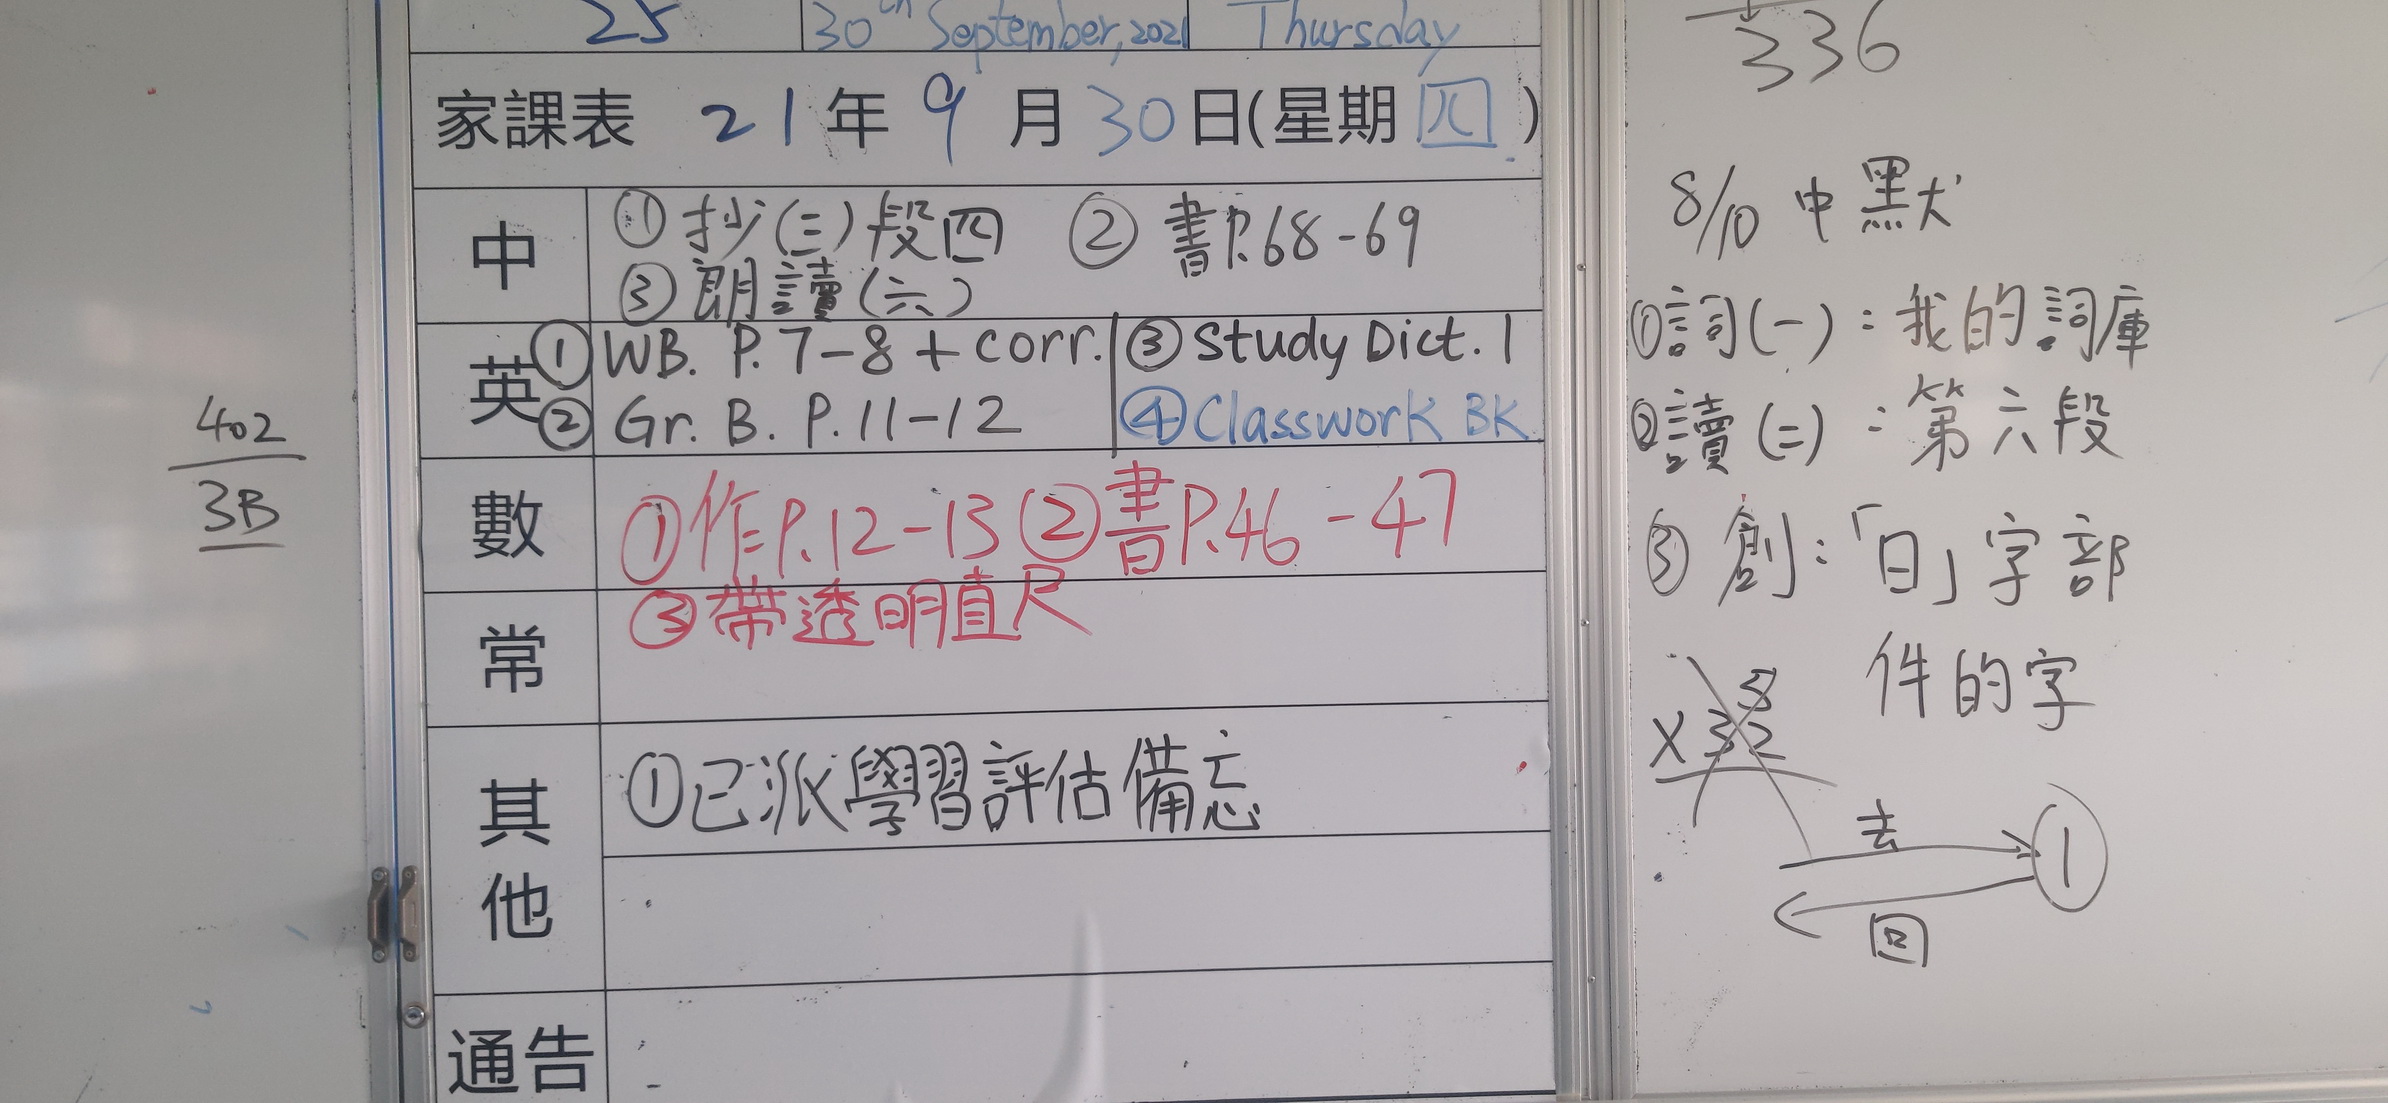 25 30th September, 2021 Thursday
家課表 21年9月30日(星期四)
中
①抄(三)段四 ②書P.68-69
③朗讀(六)
英
①WB. P.7-8 + corr. ③Study Dict. 1
②Gr. B. P.11-12 ④Classwork BK
數
①作P.12-13 ②書P.46-47
③帶透明直尺
常
其他
①已派學習評估備忘
通告
402
3B
336
8/10 中默
①詞(一):我的詞庫
②讀(二):第六段
③創:「日」字部
件的字
5
X 32
去
①
回